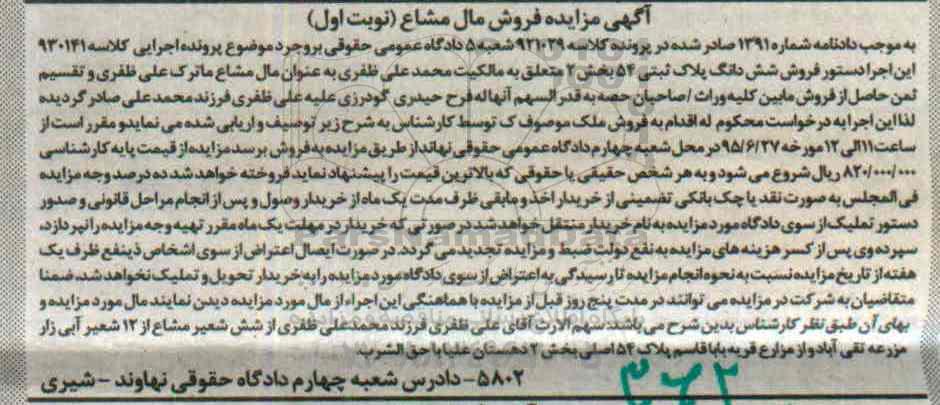 آگهی مزایده فروش مال مشاع (نوبت اول)
به موجب دادنامه شماره ۱۳۹۱ صادر شده در پرونده کلاسه ۹۲۱۰۲۹ شعبه ۵ دادگاه عمومی حقوقی بروجرد موضوع پرونده اجرایی کلاسه ۹۳۰۱۴۱
این اجرا دستور فروش شش دانگ پلاک ثبتی ۵۴ بخش ۲ متعلق به مالکیت محمد علی ظفری به عنوان مال مشاع ماترک علی ظفری و تقسیم
ثمن حاصل از فروش مابین کلیه وراث / صاحبان حصه به قدر السهم آنها له فرح حیدری گودرزی علیه علی ظفری فرزند محمد علی صادر گردیده
لذا این اجرا به درخواست محکوم له اقدام به فروش ملک موصوف ک توسط کارشناس به شرح زیر توصیف و اریابی شده می نماید و مقرر است از
ساعت ۱۱ الی ۱۲ مورخه ۹۵/۶/۲۷ در محل شعبه چهارم دادگاه عمومی حقوقی نهاند از طریق مزایده به فروش برسد مزایده از قیمت پایه کارشناسی
۸۲۰/۰۰۰/۰۰۰ ریال شروع می شود و به هر شخص حقیقی یا حقوقی که بالاترین قیمت را پیشنهاد نماید فروخته خواهد شد ده درصد وجه مزایده
فی المجلس به صورت نقد یا چک بانکی تضمینی از خریدار اخذ و مابقی ظرف مدت یک ماه از خریدار وصول و پس از انجام مراحل قانونی و صدور
دستور تملیک از سوی دادگاه مورد مزایده به نام خریدار منتقل خواهد شد در صورتی که خریدار در مهلت یک ماه مقرر تهیه وجه مزایده را نپردازد،
سپرده وی پس از کسر هزینه های مزایده به نفع دولت ضبط و مزایده تجدید می گردد. در صورت ایصال اعتراض از سوی اشخاص ذینفع ظرف یک
هفته از تاریخ مزایده نسبت به نحوه انجام مزایده تا رسیدگی به اعتراض از سوی دادگاه مورد مزایده را به خریدار تحویل و تملیک نخواهد شد، ضمنا
متقاضیان به شرکت در مزایده می توانند در مدت پنج روز قبل از مزایده با هماهنگی این اجراء از مال مورد مزایده دیدن نمایند مال مورد مزایده و
بهای آن طبق نظر کارشناس بدین شرح می باشد: سهم الارث آقای علی ظفری فرزند محمدعلی ظفری از شش شعیر مشاع از ۱۲ شعیر آبی زار
مزرعه تقی آباد و از مزارع قریه باباقاسم پلاک ۵۴ اصلی بخش ۲ دهستان علیا با حق الشرب.
۵۸۰۲- دادرس شعبه چهارم دادگاه حقوقی نهاوند - شیری
ParsNamadData